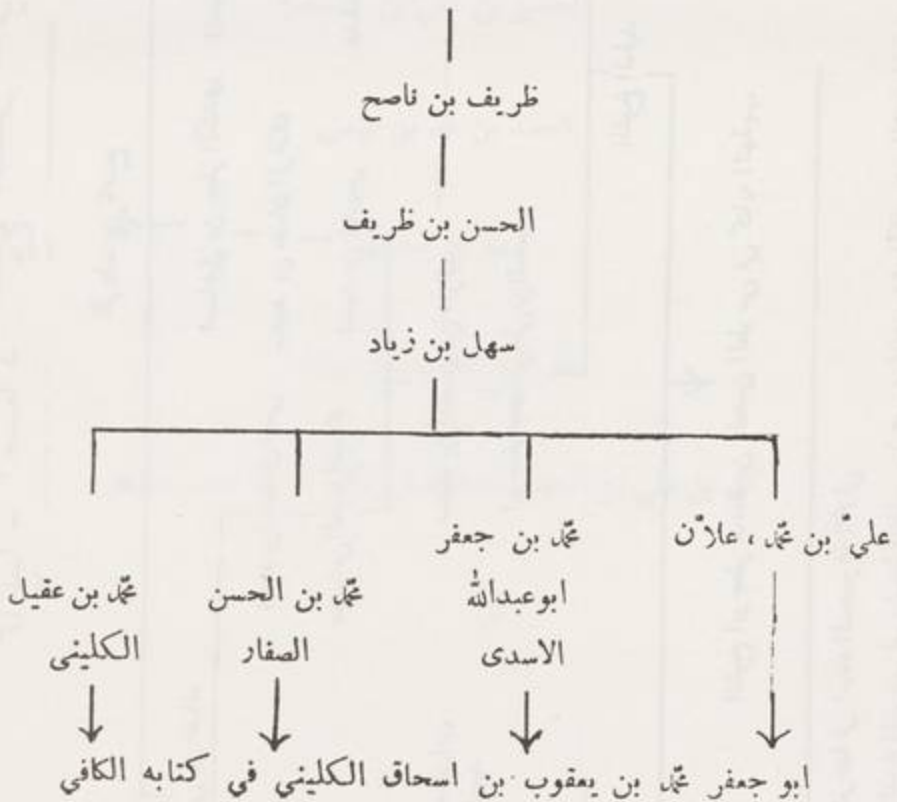 ظريف بن ناصح
الحسن بن ظريف
سهل بن زياد
عليّ بن محمّد ، علاّن
محمّد بن جعفر
ابوعبدالله
الاسدى
محمّد بن الحسن
الصفار
محمّد بن عقيل
الكلينى
ابو جعفر محمّد بن يعقوب بن اسحاق الكليني في كتابه الكافي